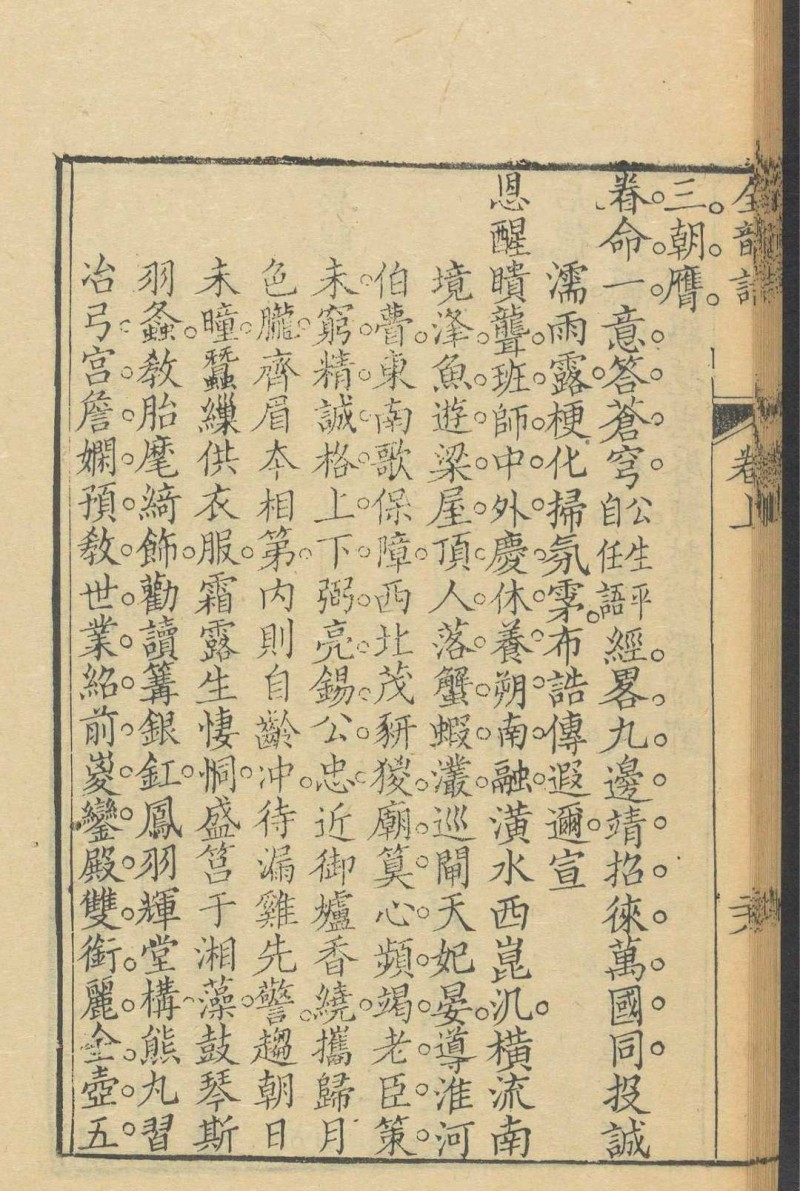 全韻詩
卷上
三朝膺
眷命一意答蒼穹公生平自任語經畧九邊靖招徠萬國同投誠
濡雨露梗化掃氛霿布誥傳遐邇宣
恩醒聵聾班師中外慶休養朔南融潢水西崑汎橫流南
境洚魚遊梁屋頂人落蟹蝦灇巡閘天妃晏導淮河
伯瞢東南歌保障西北茂豜豵廟筭心頻竭老臣策
未窮精誠格上下弼亮錫公忠近御爐香繞攜歸月
色朧齊眉夲相第內則自齡冲待漏雞先警趨朝日
未曈蠶繅供衣服霜露生悽恫盛筥于湘藻鼓琴斯
羽螽敎胎麾綺飾勸讀篝銀釭鳳羽輝堂構熊丸習
冶弓宮詹嫻預敎世業紹前嵏鑾殿雙銜麗金壺五